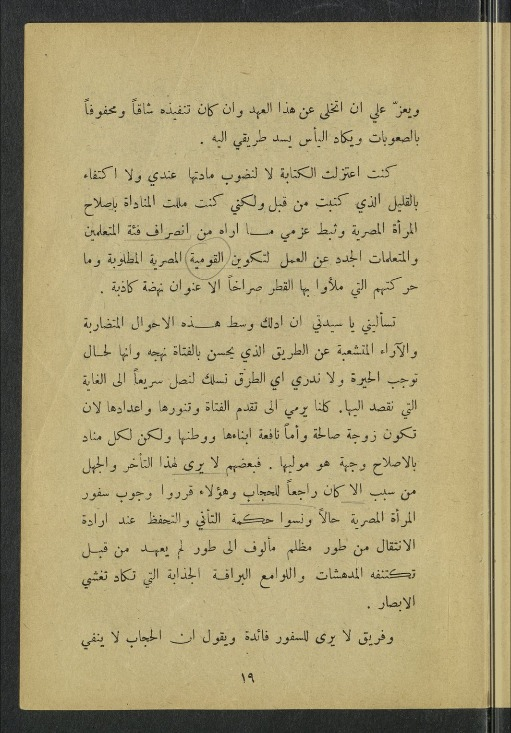 ويعزّ علي ان اتخلى عن هذا العهد وان كان تنفيذه شاقاً ومحفوفاً
بالصعوبات ويكاد اليأس يسد طريقي اليه .
كنت اعتزلت الكتابة لا لنضوب مادتها عندي ولا اكتفاء
بالقليل الذي كتبت من قبل ولكني كنت مللت المناداة بإصلاح
المرأة المصرية وثبط عزمي مـــا اراه من انصراف فئة المتعلمين
والمتعلمات الجدد عن العمل لتكوين القومية المصرية المطلوبة وما
حركتهم التي ملأوا بها القطر صراخاً الا عنوان نهضة كاذبة .
تسأليني يا سيدتي ان ادلك وسط هـــذه الاحوال المتضاربة
والآراء المتشعبة عن الطريق الذي يحسن بالفتاة نهجه وانها لحـال
توجب الحيرة ولا ندري اي الطرق نسلك لنصل سريعاً الى الغاية
التي نقصد اليها. كلنا يرمي الى تقدم الفتاة وتنورها واعدادها لان
تكون زوجة صالحة وأماً نافعة ابناءها ووطنها ولكن لكل مناد
بالاصلاح وجهة هو موليها . فبعضهم لا يرى لهذا التأخر والجهل
من سبب الا كان راجعاً للحجاب وهؤلاء قرروا وجوب سفور
المرأة المصرية حالاً ونسوا حكمة التأني والتحفظ عند ارادة
الانتقال من طور مظلم مألوف الى طور لم يعهد من قبـل
تكتنفه المدهشات واللوامع البراقـة الجذابة التي تكاد تغشي
الابصار .
وفريق لا يرى للسفور فائدة ويقول ان الحجاب لا ينفي
١٩